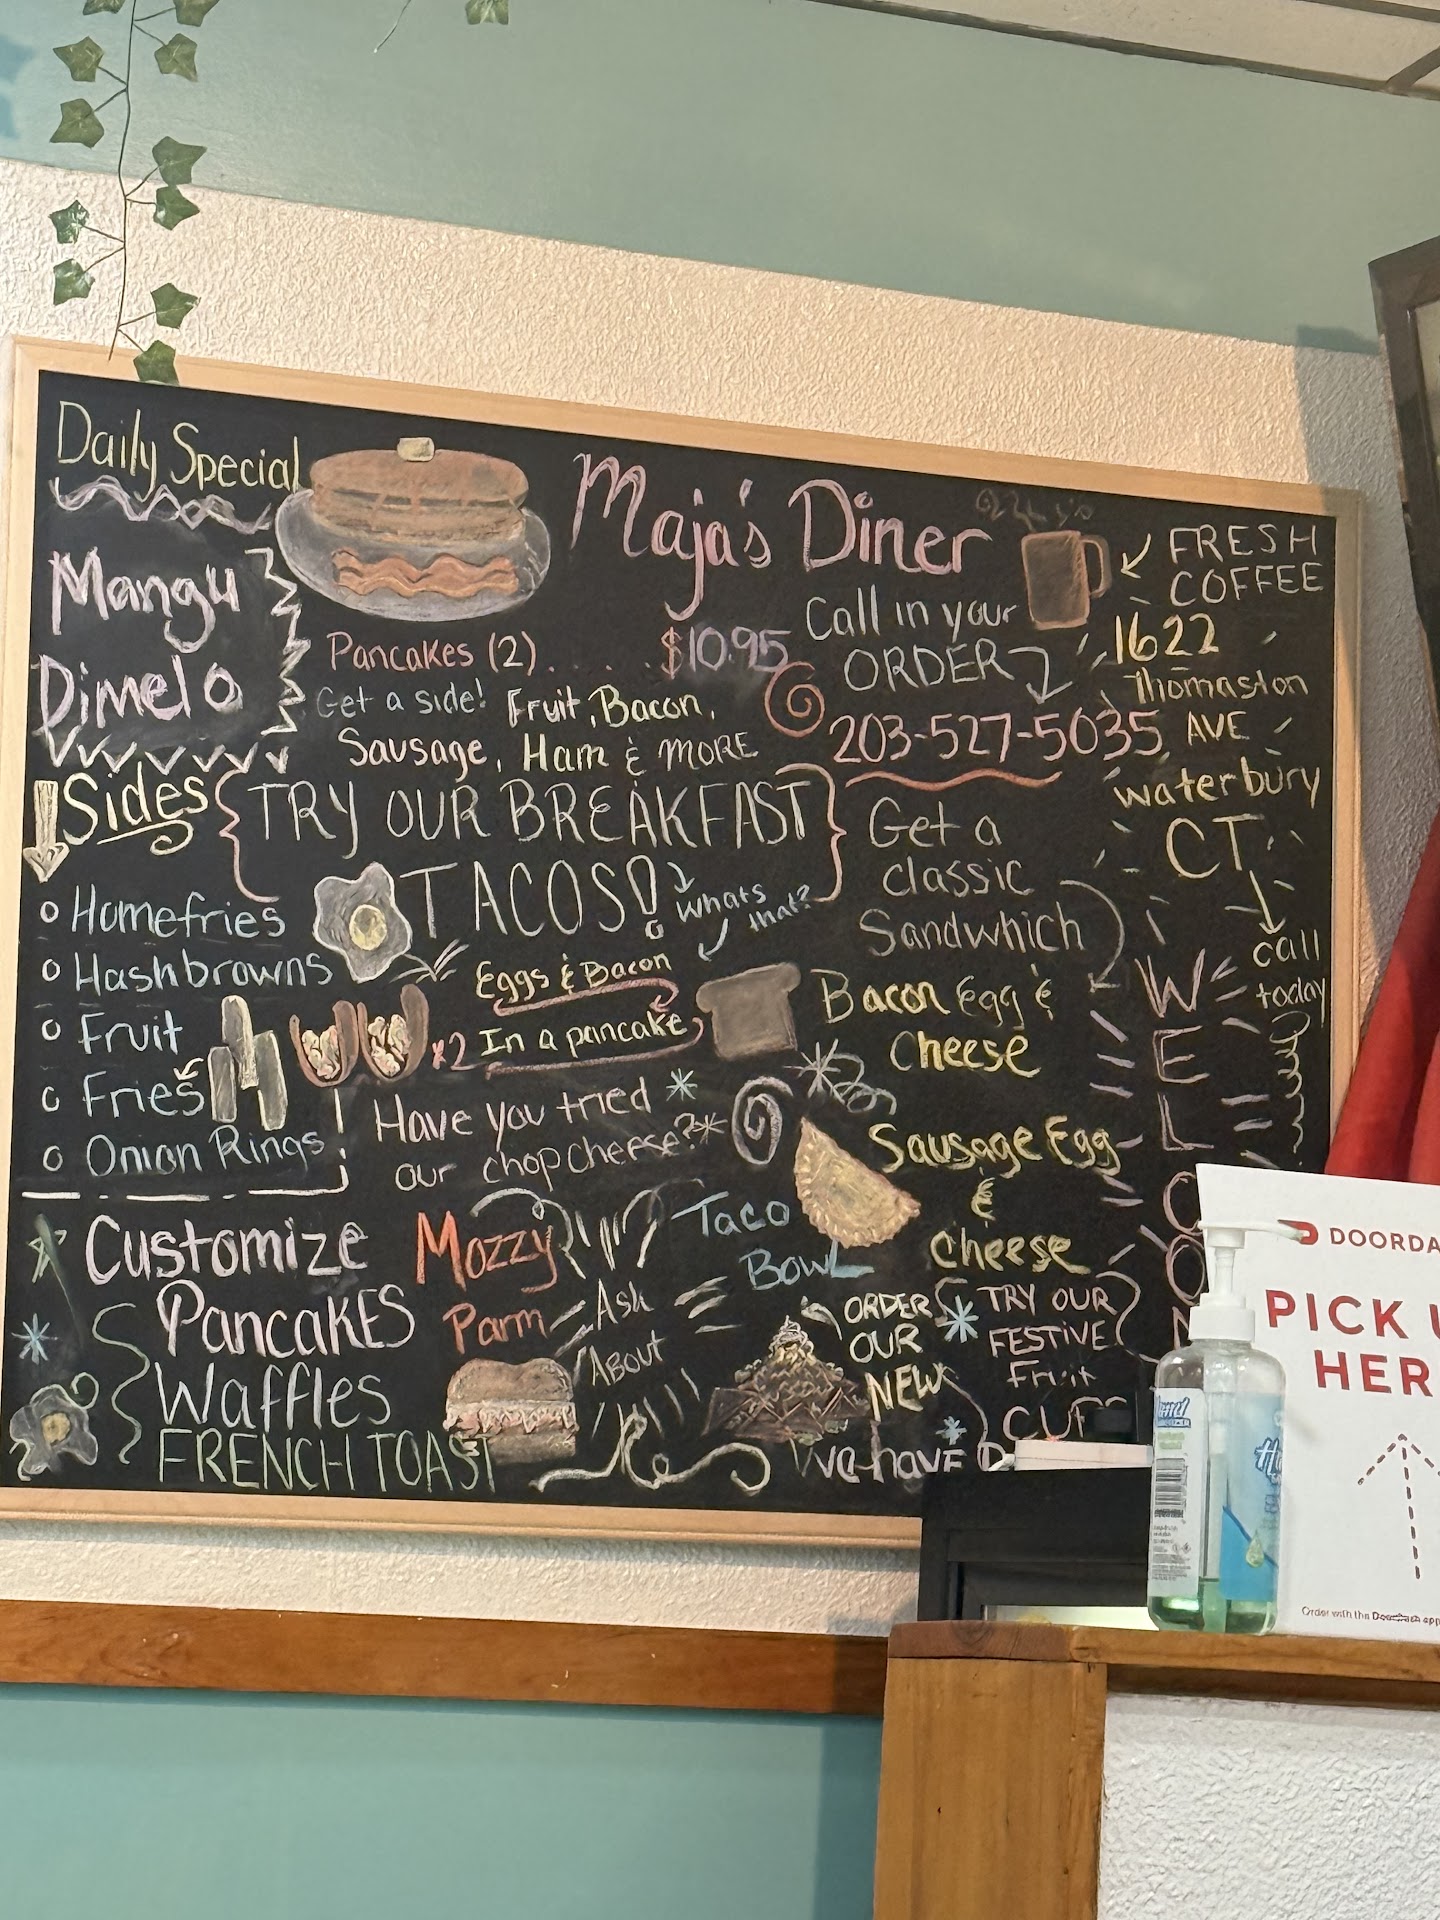 Daily Special
Mangu
Dimelo
Maja's Diner
FRESH
COFFEE
Pancakes (2). . . . . $10.95
Get a side! Fruit, Bacon,
Sausage, Ham & MORE
Call in your
ORDER
203-527-5035
1622
Thomaston
AVE
Waterbury
CT
call
today
Sides
o Homefries
o Hashbrowns
o Fruit
o Fries
o Onion Rings
TRY OUR BREAKFAST
TACOS!
Whats
that?
Eggs & Bacon
In a pancake
x2
Have you tried
our chopcheese?
Get a
classic
Sandwhich
Bacon Egg &
Cheese
Sausage Egg
&
Cheese
WELCOM
Customize
PancaKES
Waffles
FRENCH TOAST
Mozzy
Parm
Ask
About
Taco
BowL
ORDER
OUR
NEW
TRY OUR
FESTIVE
Fruit
CUPS
We have
DOORDA
PICK U
HER
Order with the DoorDash app